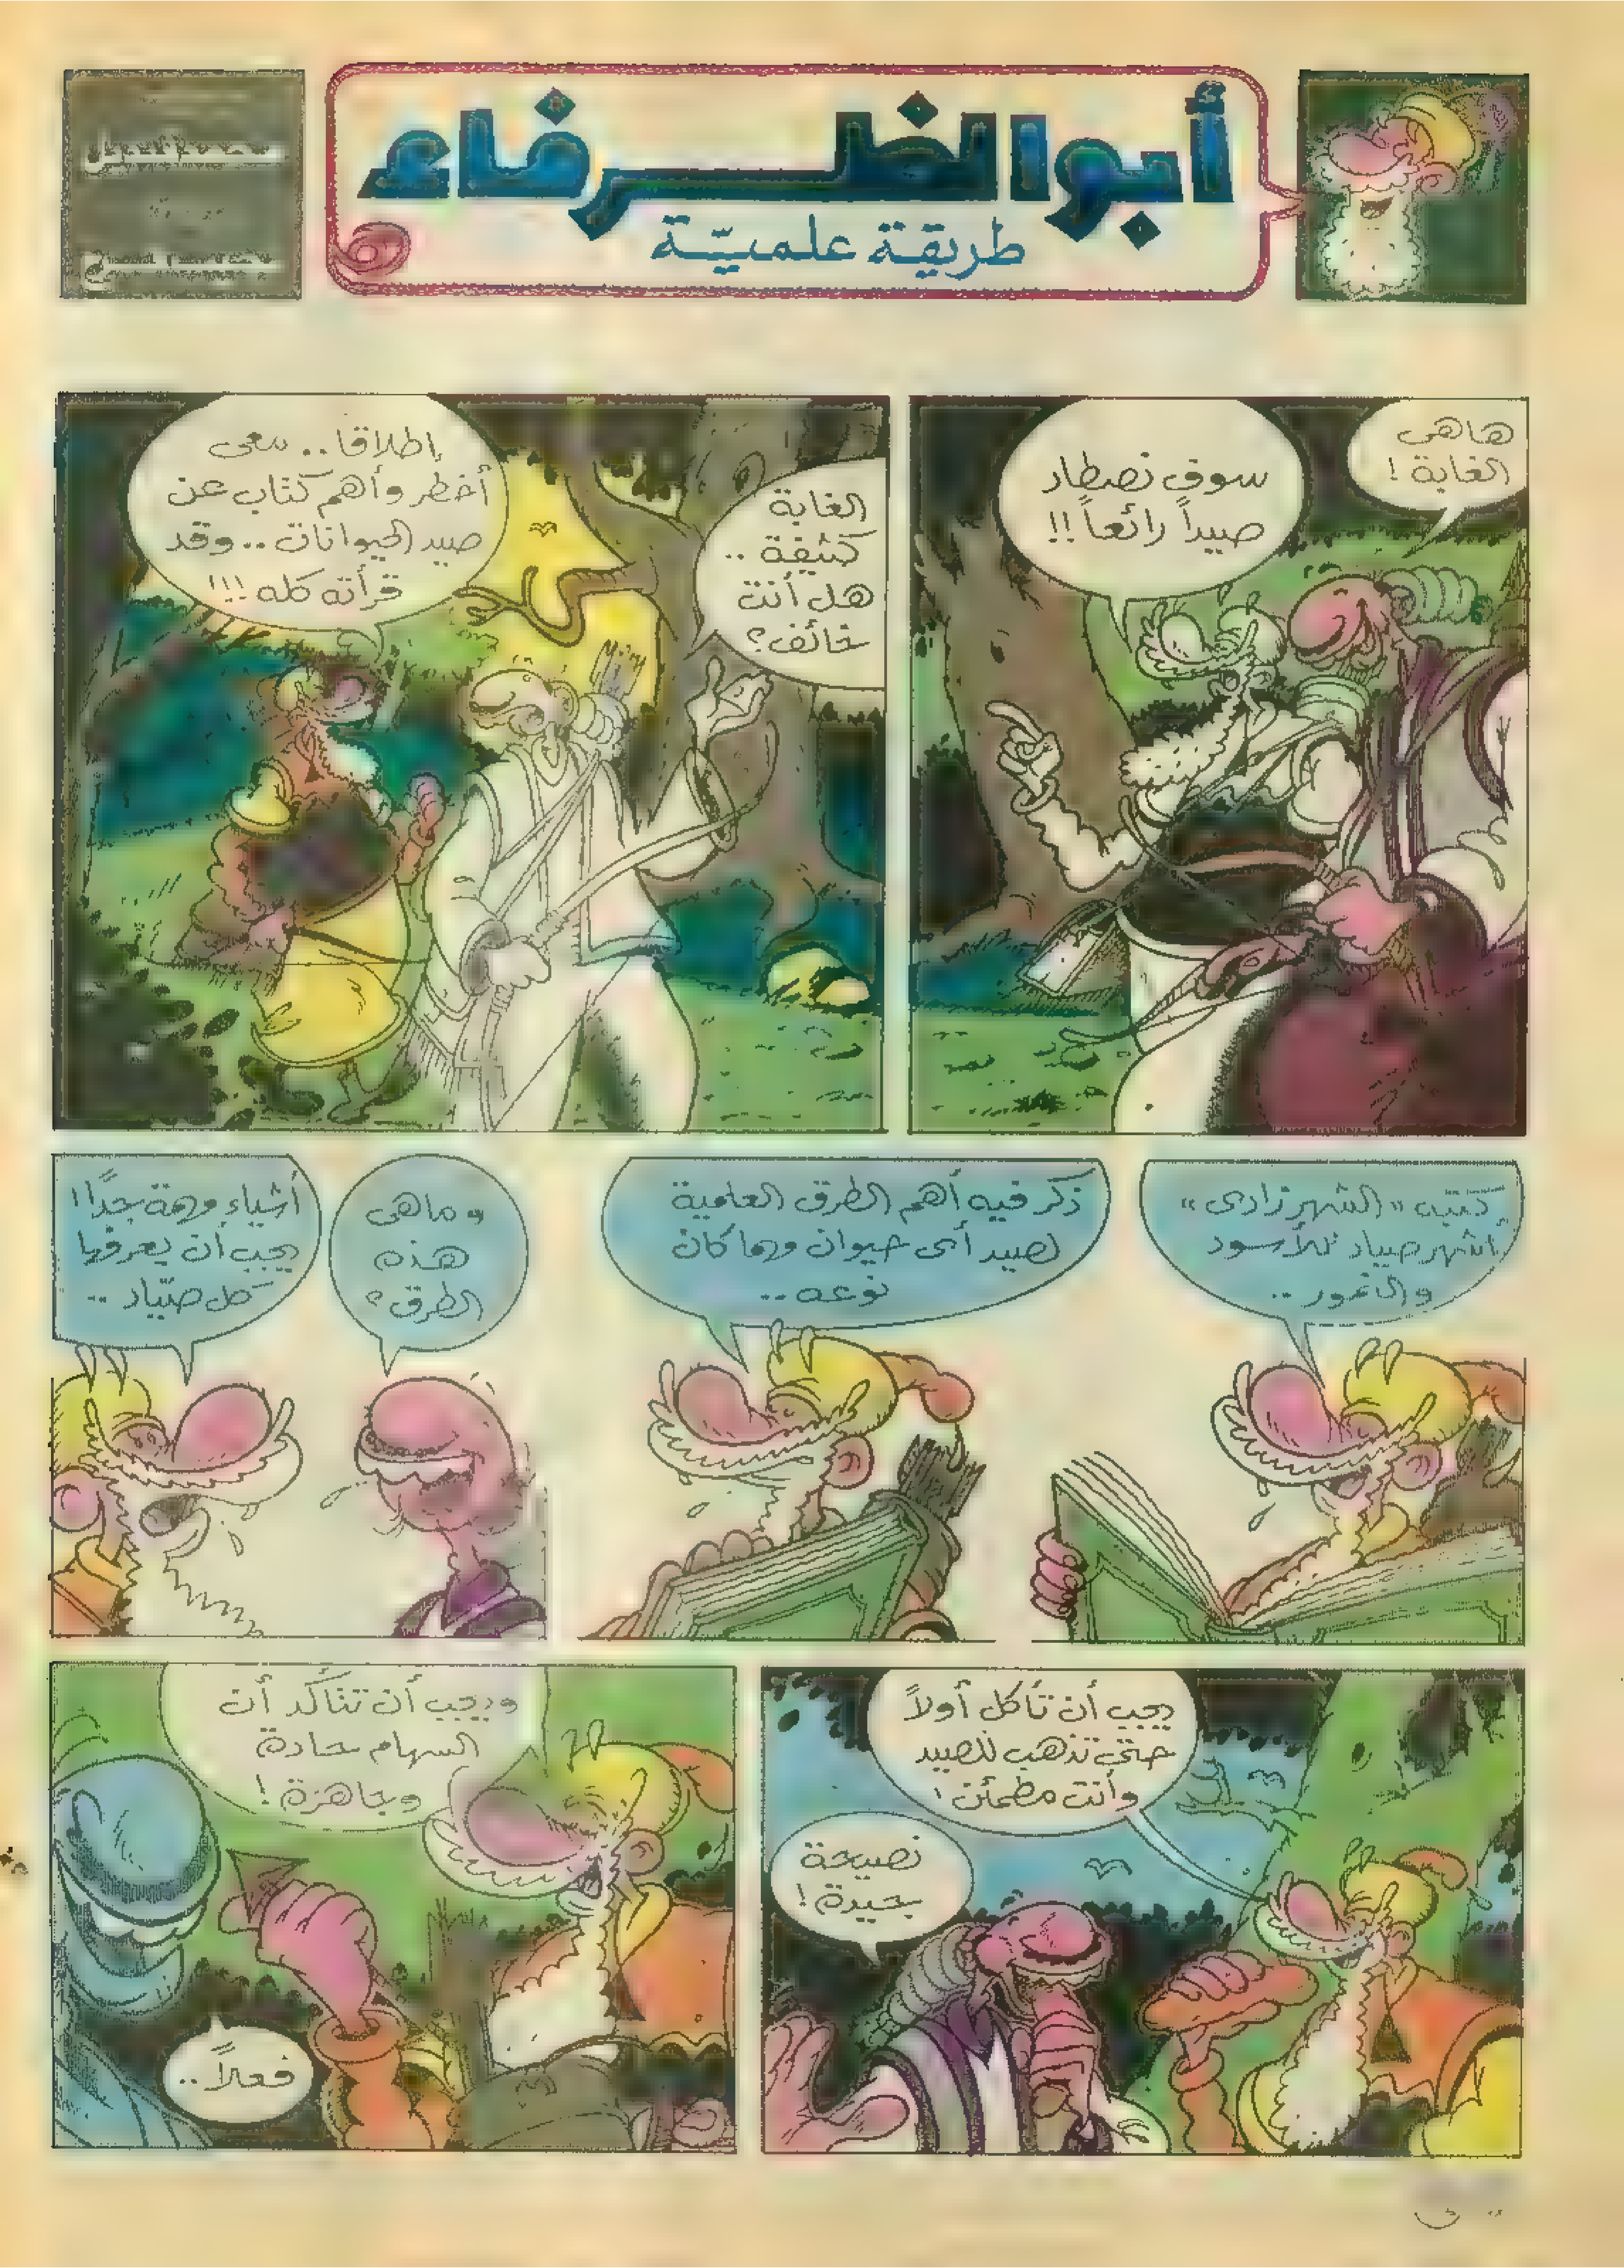 أبو الظرفاء
طريقة علميّة
هاهى
الغابة !
سوف نصطاد
صيداً رائعاً !!
الغابة
كثيفة ..
هل أنت
خائف ؟
إطلاقا .. معى
أخطر وأهم كتاب عن
صيد الحيوانات .. وقد
قرأته كله !!!
كتبه « الشهرزادى »
أشهر صياد للأسود
والنمور ..
ذكر فيه أهم الطرق العلمية
لصيد أى حيوان مهما كان
نوعه ..
وماهى
هذه
الطرق ؟
أشياء مهمة جدًا !
يجب أن يعرفها
كل صيّاد ..
يجب أن تأكل أولاً
حتى تذهب للصيد
وأنت مطمئن !
نصيحة
جيدة !
ويجب أن تتأكد أن
السهام حادة
وجاهزة !
فعلاً ..